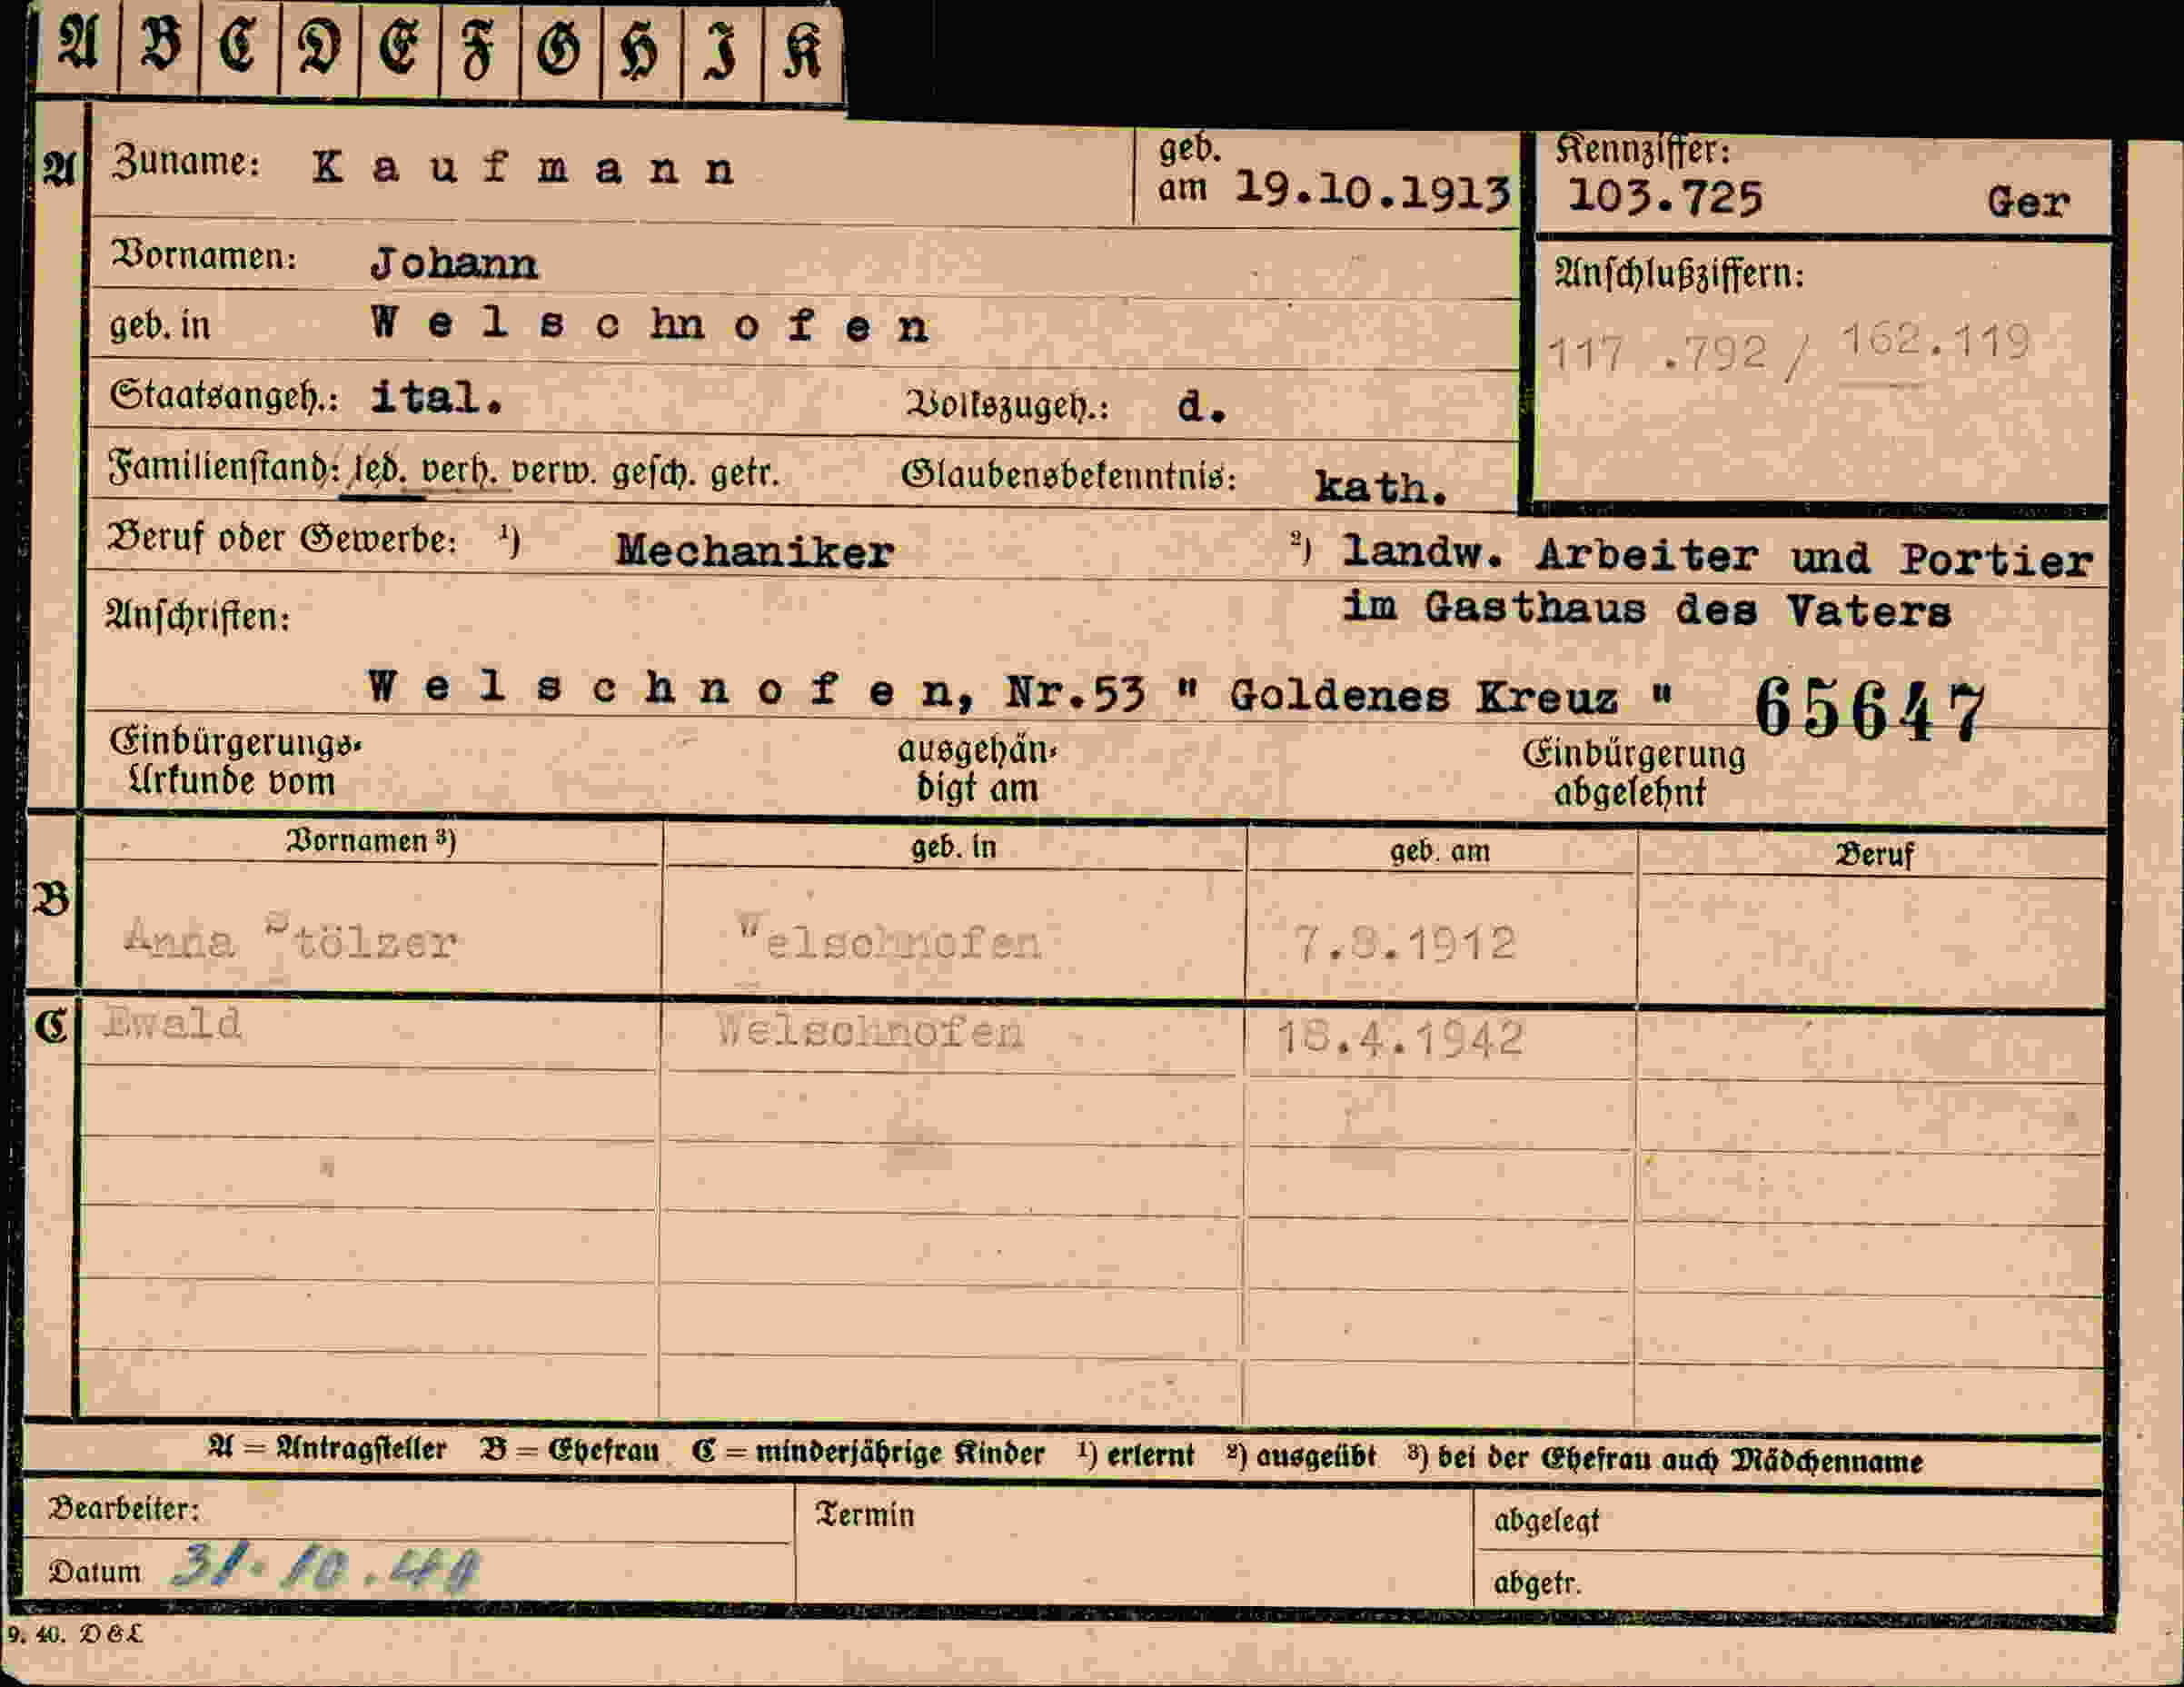 A B C D E F G H I K
A Zuname: Kaufmann geb. am 19.10.1913 Kennziffer: 103.725 Ger
Vornamen: Johann Anschlußziffern:
geb. in Welschnofen 117.792 / 162.119
Staatsangeh.: ital. Volkszugeh.: d.
Familienstand: led. verh. verw. gesch. getr. Glaubensbekenntnis: kath.
Beruf oder Gewerbe: 1) Mechaniker 2) landw. Arbeiter und Portier
im Gasthaus des Vaters
Anschriften:
Welschnofen, Nr.53 " Goldenes Kreuz " 65647
Einbürgerungs-Urkunde vom ausgehändigt am Einbürgerung abgelehnt
Vornamen 3) geb. in geb. am Beruf
B Anna Stölzer Welschnofen 7.8.1912
C Ewald Welschnofen 18.4.1942
A = Antragsteller B = Ehefrau C = minderjährige Kinder 1) erlernt 2) ausgeübt 3) bei der Ehefrau auch Mädchenname
Bearbeiter: Termin abgelegt
Datum 31.10.40 abgetr.
9. 40. D&L